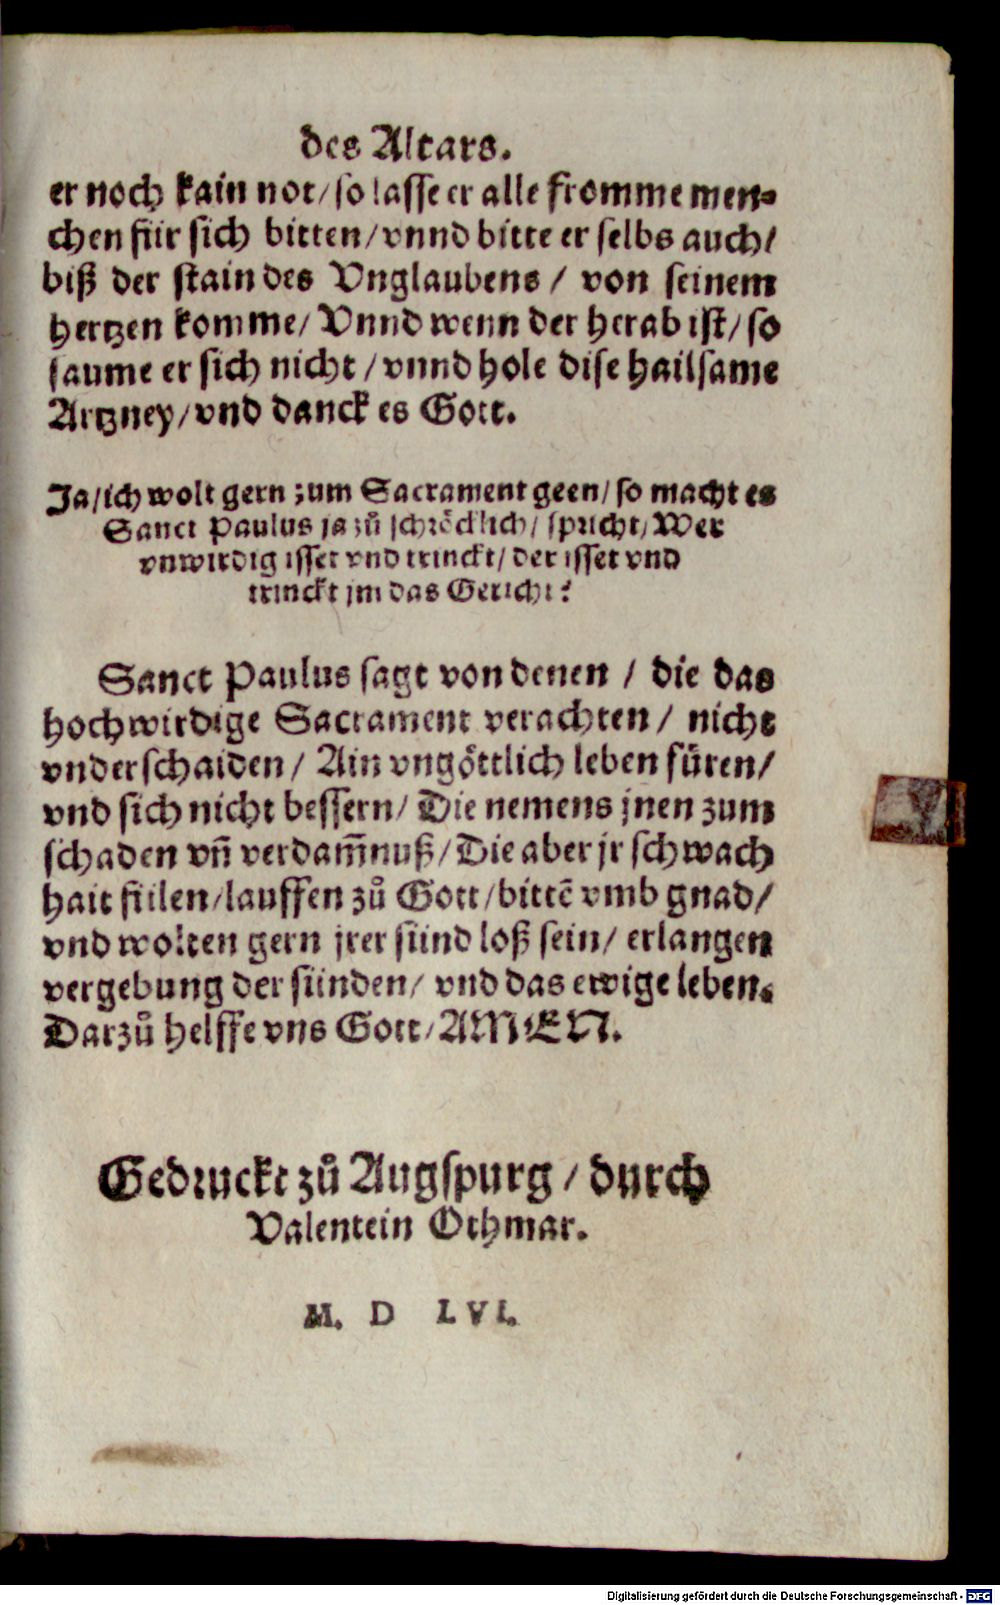 des Altars.
er noch kain not/ so lasse er alle fromme men⸗
chen für sich bitten/ vnnd bitte er selbs auch/
biß der stain des Vnglaubens / von seinem
hertzen komme/ Vnnd wenn der herab ist/ so
saume er sich nicht / vnnd hole dise hailsame
Artzney/ vnd danck es Gott.
Ja/ ich wolt gern zum Sacrament geen/ so macht es
Sanct Paulus ja zů schröcklich/ spricht/ Wer
vnwirdig isset vnd trinckt/ der isset vnd
trinckt jm das Gericht?
Sanct Paulus sagt von denen / die das
hochwirdige Sacrament verachten/ nicht
vnderschaiden/ Ain vngöttlich leben füren/
vnd sich nicht bessern/ Die nemens jnen zum
schaden vñ verdam̃nuß/ Die aber jr schwach
hait fülen/ lauffen zů Gott/ bittē vmb gnad/
vnd wolten gern jrer sünd loß sein/ erlangen
vergebung der sünden/ vnd das ewige leben.
Darzů helffe vns Gott/ AMEN.
Gedruckt zů Augspurg / durch
Valentein Othmar.
M. D LVI.
Digitalisierung gefördert durch die Deutsche Forschungsgemeinschaft - DFG